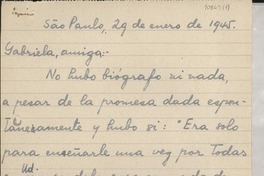 São Paulo, 29 de enero de 1945.
Gabriela, amiga:
No hubo biógrafo ni nada,
a pesar de la promesa dada espon-
táneamente y hubo sí: "Era solo
para enseñarle una vez por Todas
Ud.